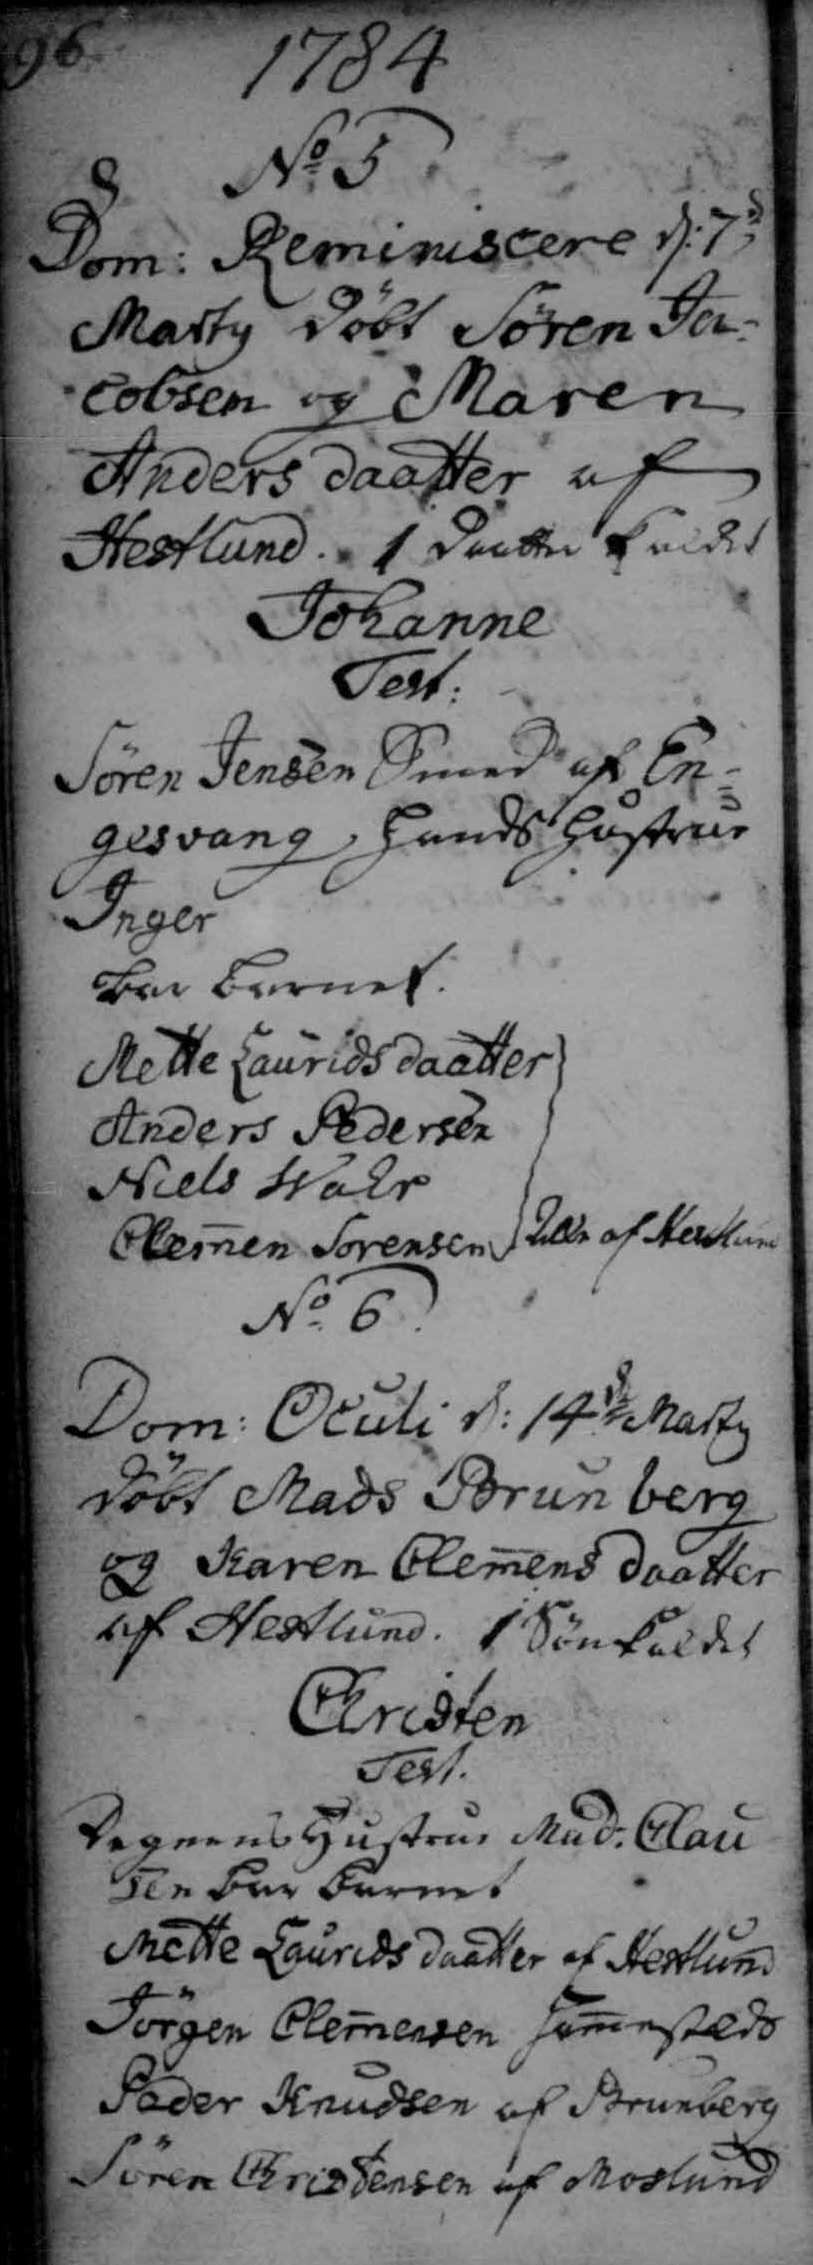 96
1784
No 5
Dom: Reminiscere d: 7de
Marty döbt Sören Ja-
cobsen og Maren
Anders daatter af
Hestlund. 1 Daatter kaldet
Johanne
Test:
Sören Jensen Smed af En-
gesvang, Hands Hustrue
Inger
bar Barnet.
Mette Lauridsdaatter
Anders Pedersen
Niels Wahr
Clem̄en Sorensen } alle af Hestlund
No 6
Dom: Oculi d: 14de Marty
döbt Mads Brunberg
og Karen Clem̄ens daatter
af Hestlund. 1 Sön kaldet
Christen
Test.
Degnens Hustrue Mad. Clau
sen bar Barnet
Mette Laurids daatter af Hestlund
Jörgen Clem̄ensen Sam̄esteds
Peder Knudsen af Brunberg
Sören Christensen af Moslund